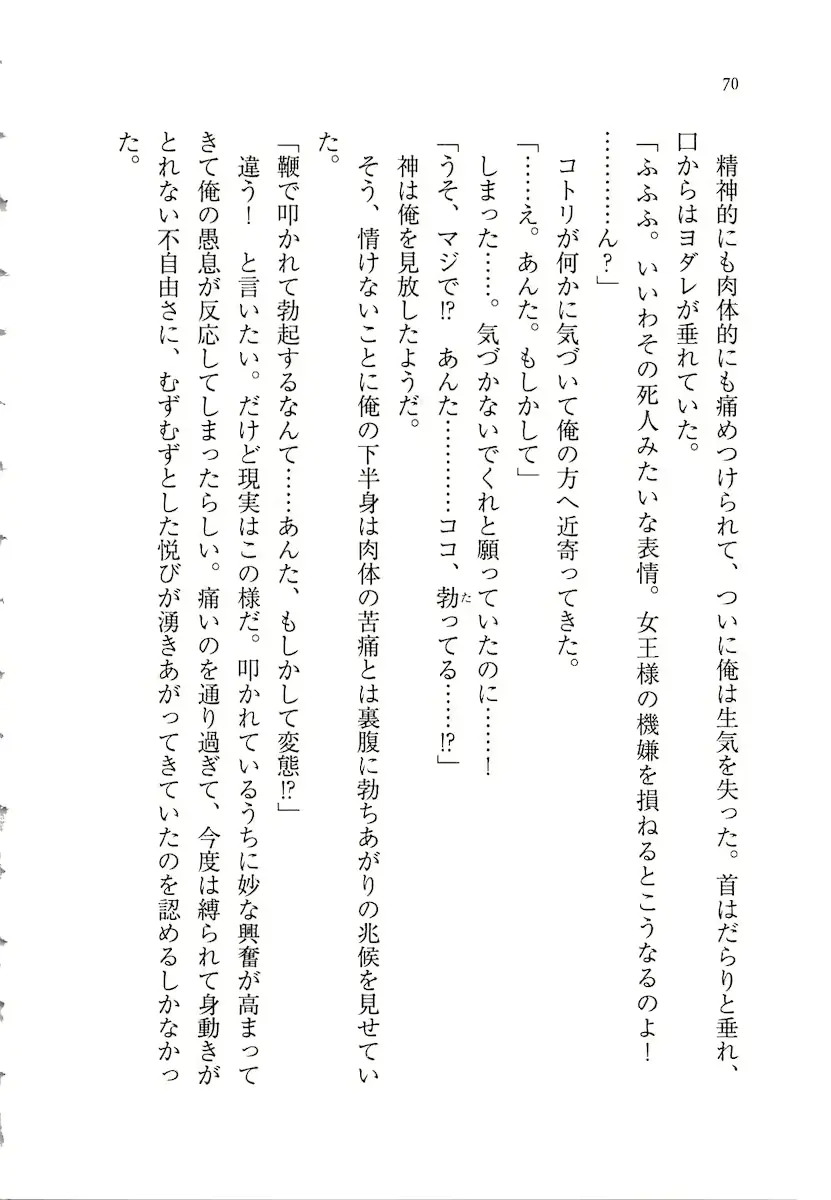 70
　精神的にも肉体的にも痛めつけられて、ついに俺は生気を失った。首はだらりと垂れ、
口からはヨダレが垂れていた。
「ふふふ。いいわその死人みたいな表情。女王様の機嫌を損ねるとこうなるのよ！
…………ん？」
　コトリが何かに気づいて俺の方へ近寄ってきた。
「……え。あんた。もしかして」
　しまった……。気づかないでくれと願っていたのに……！
「うそ、マジで!?　あんた…………ココ、勃ってる……!?」
　神は俺を見放したようだ。
　そう、情けないことに俺の下半身は肉体の苦痛とは裏腹に勃ちあがりの兆候を見せてい
た。
「鞭で叩かれて勃起するなんて……あんた、もしかして変態!?」
　違う！　と言いたい。だけど現実はこの様だ。叩かれているうちに妙な興奮が高まって
きて俺の愚息が反応してしまったらしい。痛いのを通り過ぎて、今度は縛られて身動きが
とれない不自由さに、むずむずとした悦びが湧きあがってきていたのを認めるしかなかっ
た。